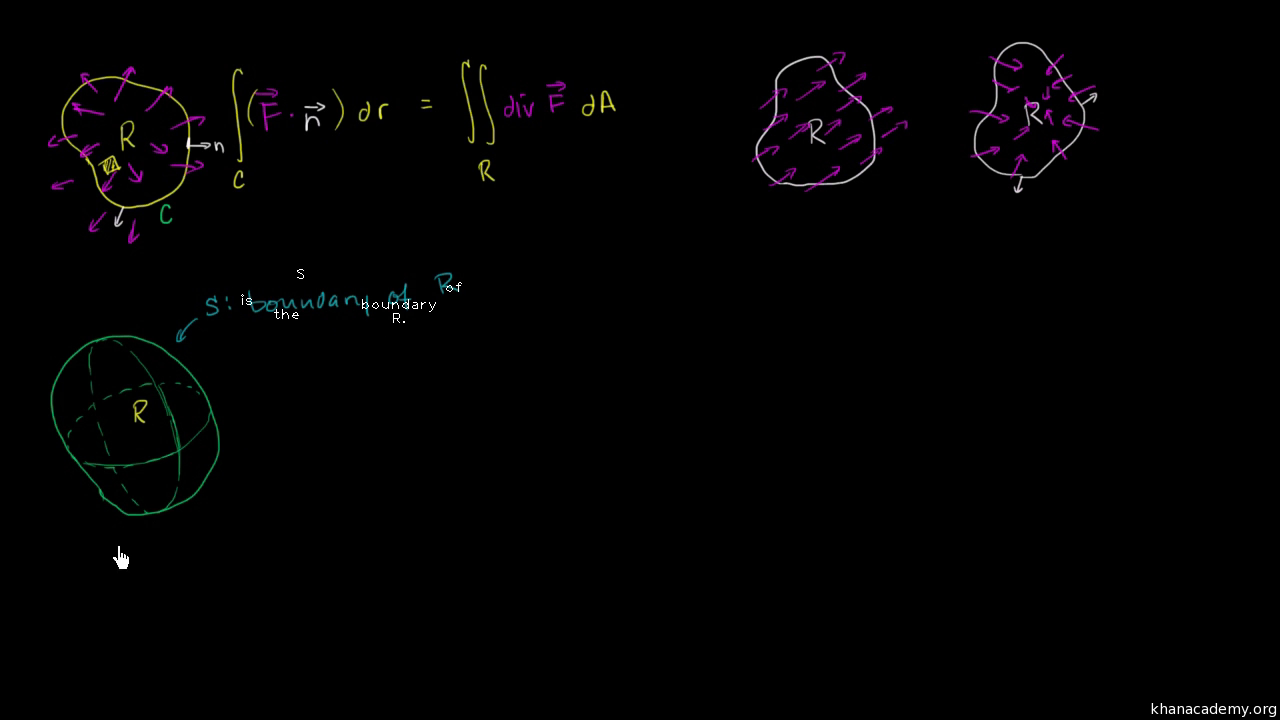 R
n
C
∫ (F⃗ · n⃗) dr = ∬ div F⃗ dA
C
R
R
R
S: boundary of R
S
is
the
boundary
of
R.
R
khanacademy.org